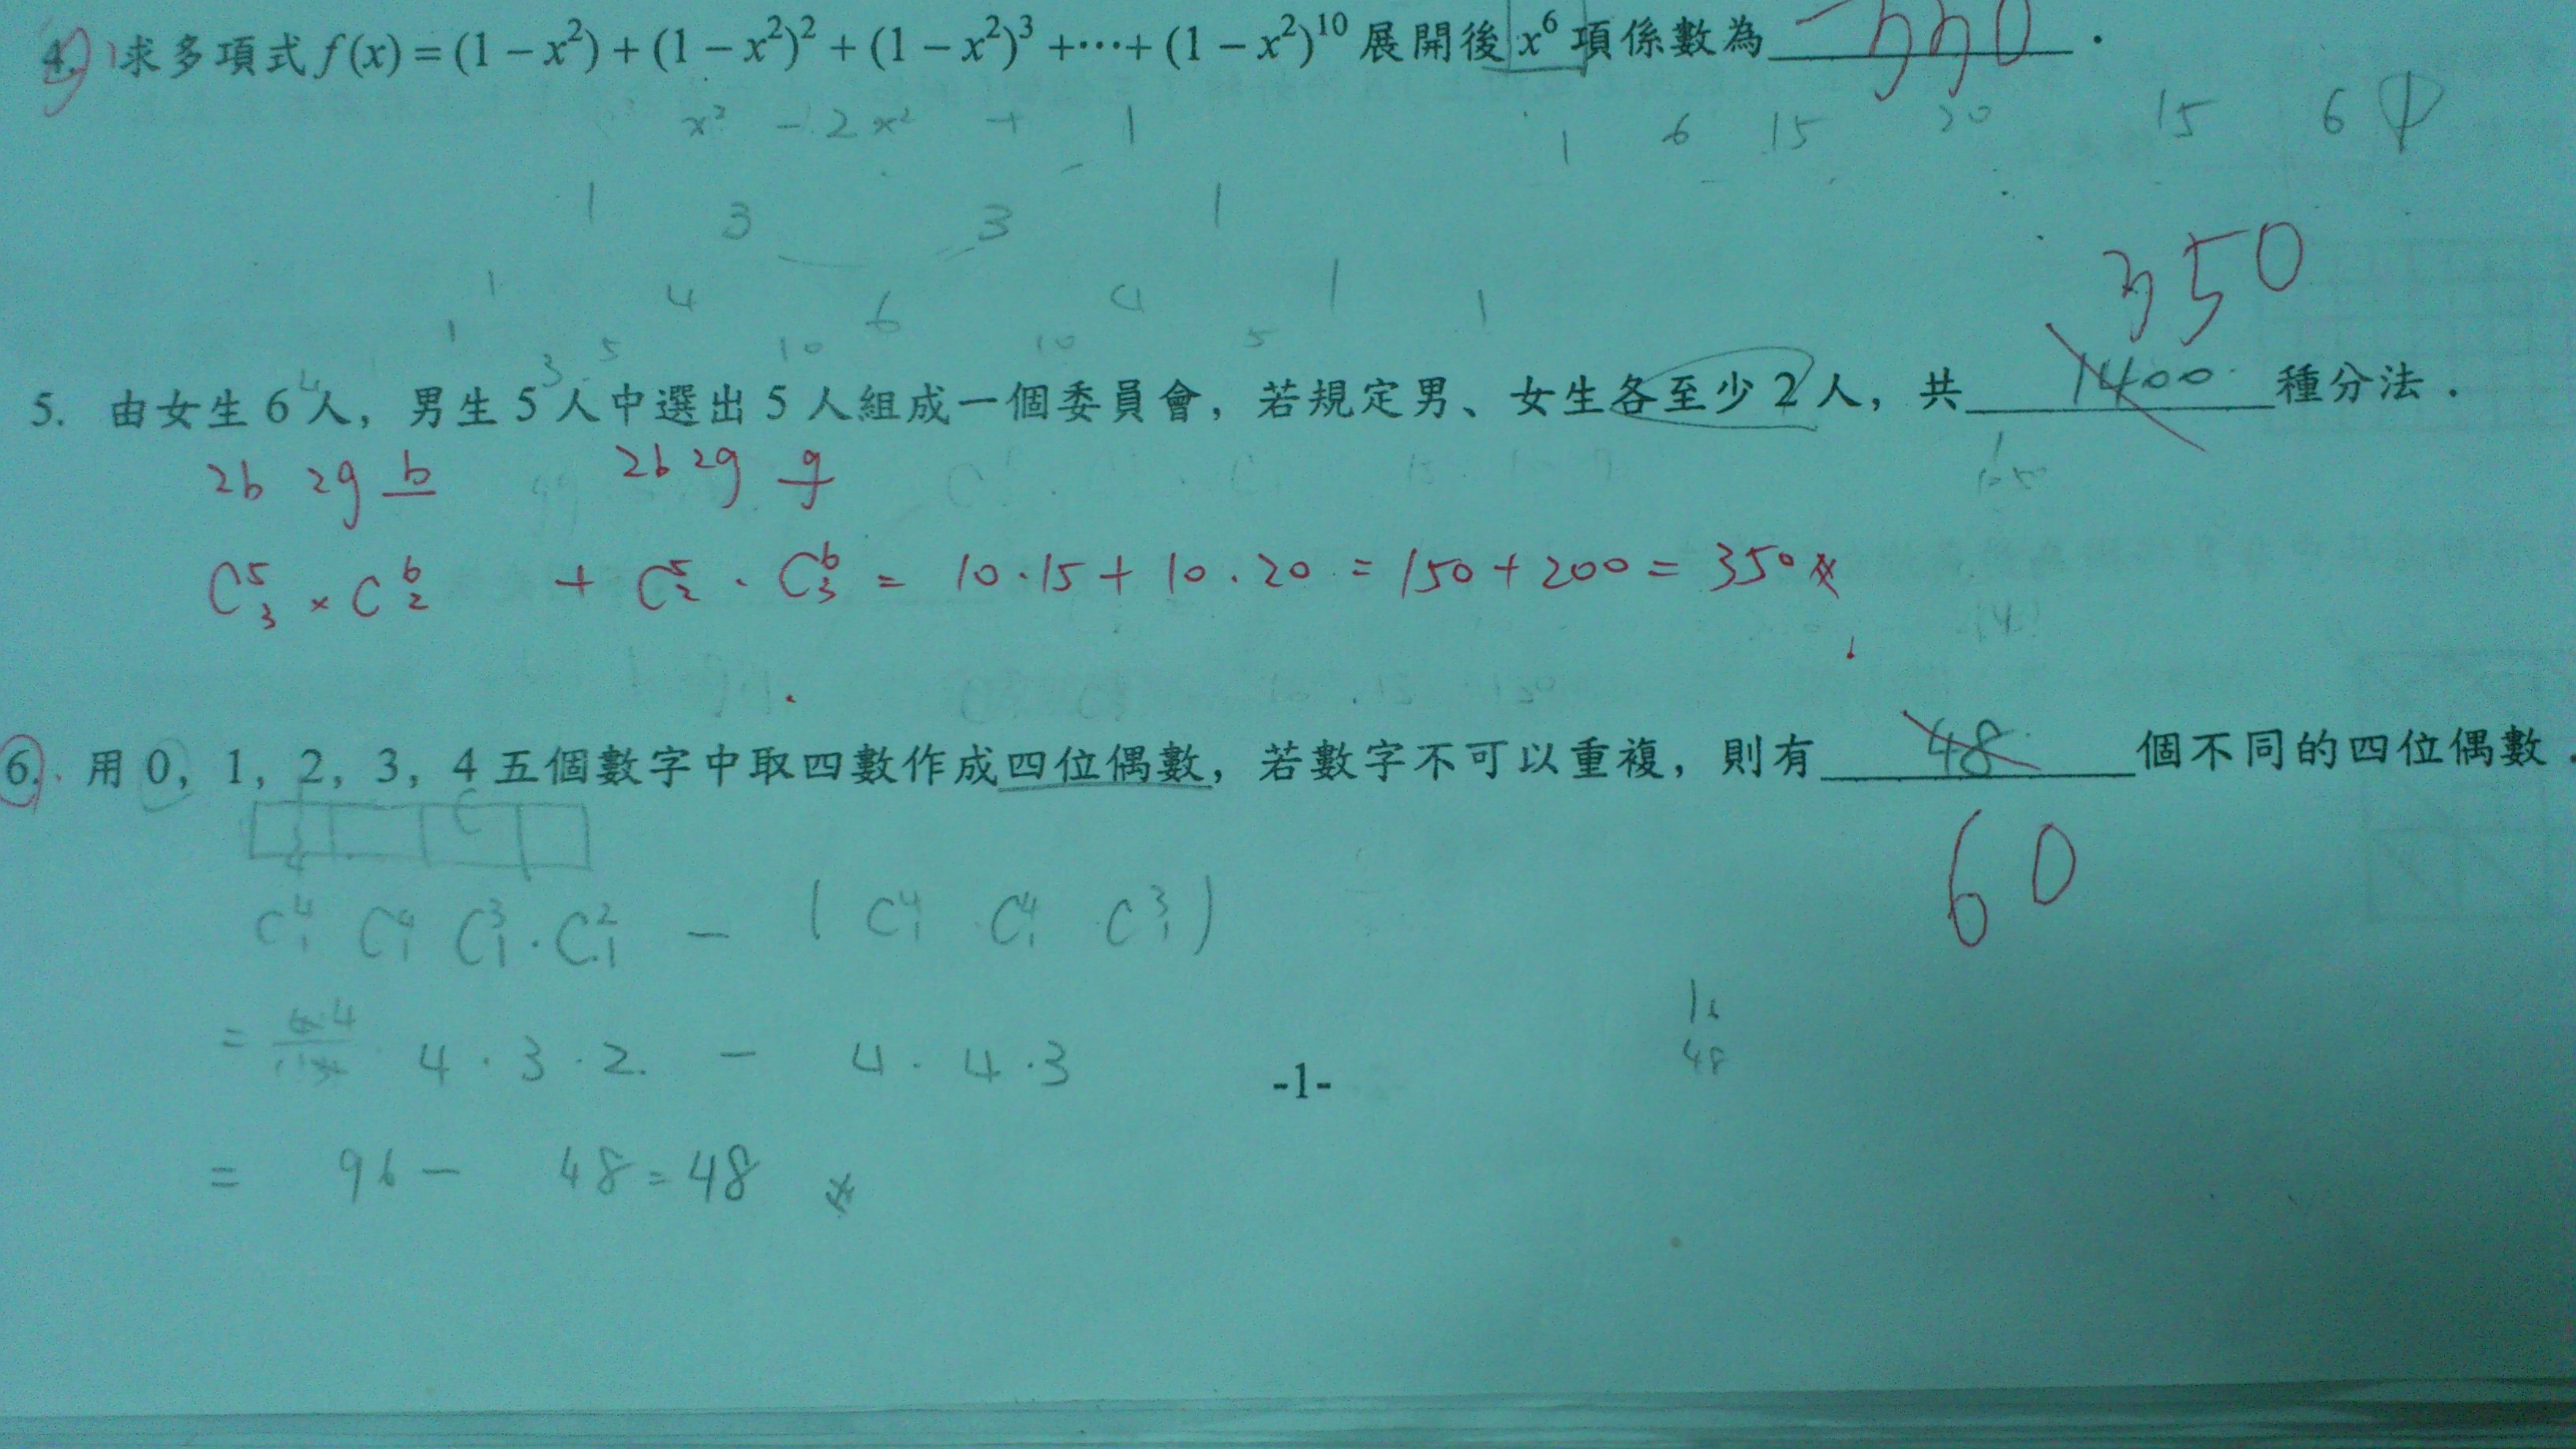 4. 求多項式 f(x) = (1 − x²) + (1 − x²)² + (1 − x²)³ +⋯+ (1 − x²)¹⁰ 展開後 x⁶ 項係數為 −330 .
x² − 2x² + 1
1 6 15 20 15 6 1
1 3 3 1
1 4 6 4 1 1
1 5 10 10 5
350
5. 由女生 6 人, 男生 5 人中選出 5 人組成一個委員會, 若規定男、女生各至少 2 人, 共 1400 種分法 .
2b 2g b 2b 2g g
C⁵₃ × C⁶₂ + C⁵₂ · C⁶₃ = 10·15 + 10·20 = 150 + 200 = 350
6. 用 0, 1, 2, 3, 4 五個數字中取四數作成四位偶數, 若數字不可以重複, 則有 48 個不同的四位偶數 .
60
C⁴₁ C⁴₁ C³₁ · C²₁ − ( C⁴₁ C⁴₁ C³₁ )
= 4 · 3 · 2 − 4 · 4 · 3
48
-1-
= 96 − 48 = 48